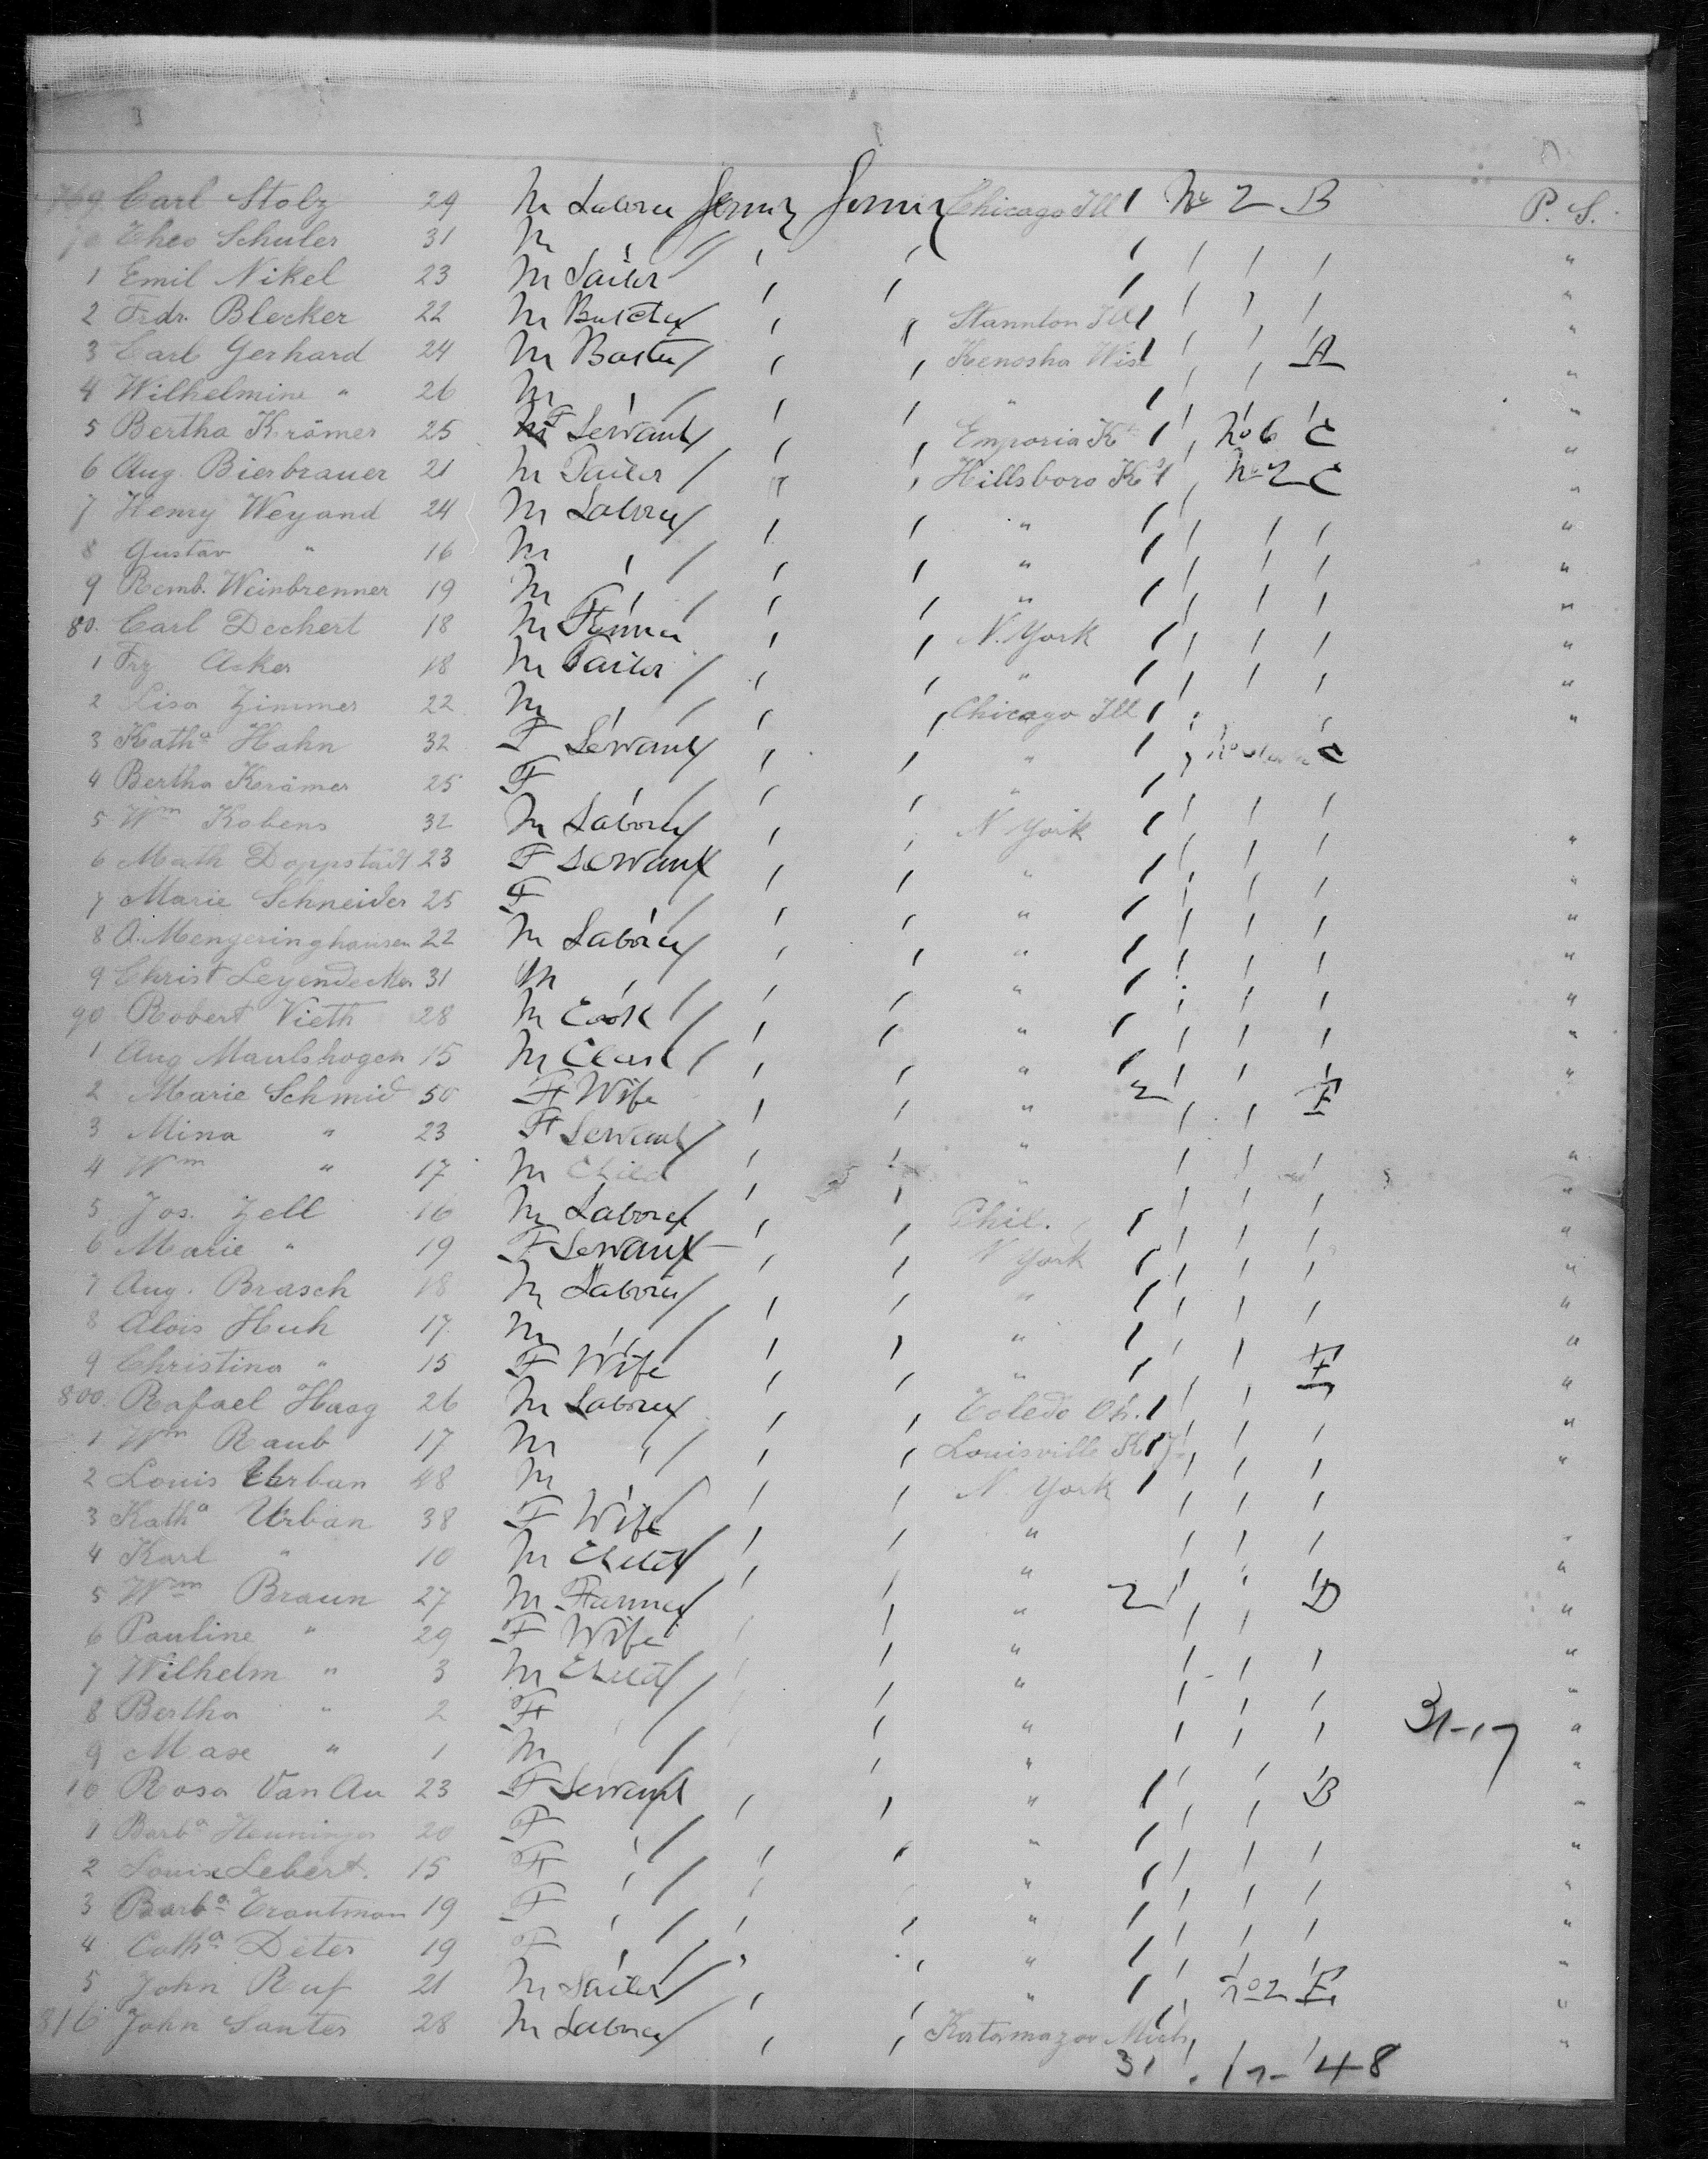 769 Carl Stolz 29 M Laborer Germny Germny Chicago Ill 1 No 2 B P. S.
70 Theo Schuler 31 M " " " 1 " " " "
1 Emil Nikel 23 M Sailor " " 1 " " " "
2 Frdr. Blecker 22 M Butcher " " Stannton Ill 1 " " " "
3 Carl Gerhard 24 M " " Kenosha Wis 1 " " A "
4 Wilhelmine " 26 M " " " " 1 " " " "
5 Bertha Krämer 25 F Servant " " Emporia Ks 1 " No 6 C "
6 Aug. Bierbrauer 21 M Tailor " " Hillsboro Ks 1 " No 2 C "
7 Henry Weyand 24 M Laborer " " " 1 " " " "
8 Gustav " 16 M " " " " 1 " " " "
9 Remb. Weinbrenner 19 M " " " " 1 " " " "
80. Carl Dechert 18 M " " N. York 1 " " " "
1 Frz Acker 18 M Tailor " " " 1 " " " "
2 Lisa Zimmer 22 M " " " Chicago Ill 1 " " "
3 Katha Hahn 32 F Servant " " " 1 " C
4 Bertha Krämer 25 F " " " " 1 " " "
5 Wm Kobens 32 M Laborer " " N York 1 " " " "
6 Math Doppstädt 23 F Servant " " " 1 " " " "
7 Marie Schneider 25 F " " " " 1 " " " "
8 A. Mengeringhausen 22 M Laborer " " " 1 " " " "
9 Christ Leyendecker 31 M " " " " 1 " " " "
90 Robert Vieth 28 M Cook " " " 1 " " " "
1 Aug Maulshagen 15 M Clerk " " " 1 " " " "
2 Marie Schmid 50 F Wife " " " 2 " " E
3 Mina " 23 F Servant " " " " " " "
4 Wm " 17 M Child " " " " " " "
5 Jos. Zell 16 M Laborer " " Phil. 1 " " " "
6 Marie " 19 F Servant " " N York 1 " " " "
7 Aug. Brasch 18 M Laborer " " " 1 " " " "
8 Alois Huh 17 M " " " " 1 " " " "
9 Christina " 15 F Wife " " " 1 " " E "
800. Rafael Haag 26 M Laborer " " Toledo Oh. 1 " " " "
1 Wm Raub 17 M " " " Louisville Ky 1 " " " "
2 Louis Urban 48 M " " " N. York 1 " " "
3 Katha Urban 38 F Wife " " " " " " "
4 Karl " 10 M Child " " " " " " "
5 Wm Braun 27 M Farmer " " " 2 " " D "
6 Pauline " 29 F Wife " " " " " " "
7 Wilhelm " 3 M Child " " " " " " "
8 Bertha " 2 F " " " " " " 31-17 "
9 Max " 1 M " " " " " "
10 Rosa Van Au 23 F Servant " " " 1 " " B "
1 Barba Henninger 20 F " " " " 1 " " " "
2 Louise Lebert. 15 F " " " " 1 " " " "
3 Barba Trautman 19 F " " " " 1 " " " "
4 Catha Deter 19 F " " " " 1 " " " "
5 John Ruf 21 M Sailor " " " 1 " No 2 E "
816 John Santer 28 M Laborer " " Katamazoo Mich 1 " " " "
31 . 17 - 48